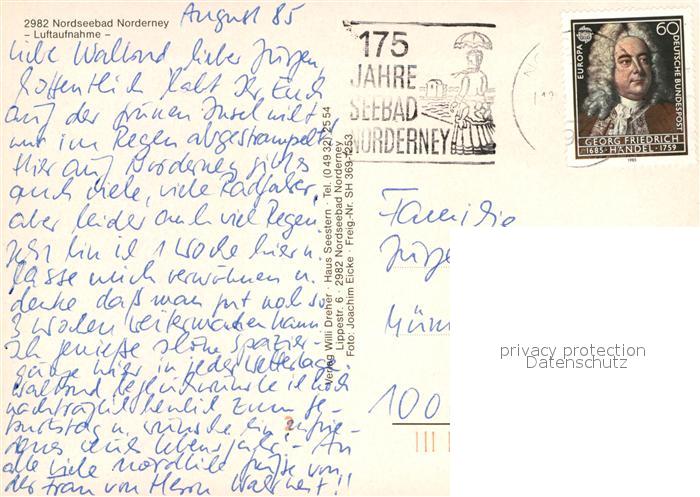 August 85
2982 Nordseebad Norderney
– Luftaufnahme –
Liebe Waltraud lieber Jürgen,
hoffentlich habt Ihr Euch
auf der grünen Insel nicht
nur im Regen abgestrampelt,
Hier auf Norderney gibt es
auch viele, viele Radfahrer,
aber leider auch viel Regen.
Jetzt bin ich 1 Woche hier u.
lasse mich verwöhnen u.
denke daß man gut noch so
3 Wochen weitermachen kann.
Ich genieße schöne Spazier-
gänge hier in jeder Wetterlage.
Waltraud beglückwünsche ich noch
nachträglich herzlich zum Ge-
burtstag u. wünsche ein zufrie-
denes neues Lebensjahr! - An
alle viele nördliche Grüße von
der Frau von Herrn
Verlag Willi Dreher · Haus Seestern · Tel. (0 49 32) 25 54
Lippestr. 6 · 2982 Nordseebad Norderney
Foto: Joachim Eicke · Freig.-Nr. SH 369-1253
175
JAHRE
SEEBAD
NORDERNEY
EUROPA
60
DEUTSCHE BUNDESPOST
GEORG FRIEDRICH
1685 · HÄNDEL · 1759
1985
Familie
100
privacy protection
Datenschutz